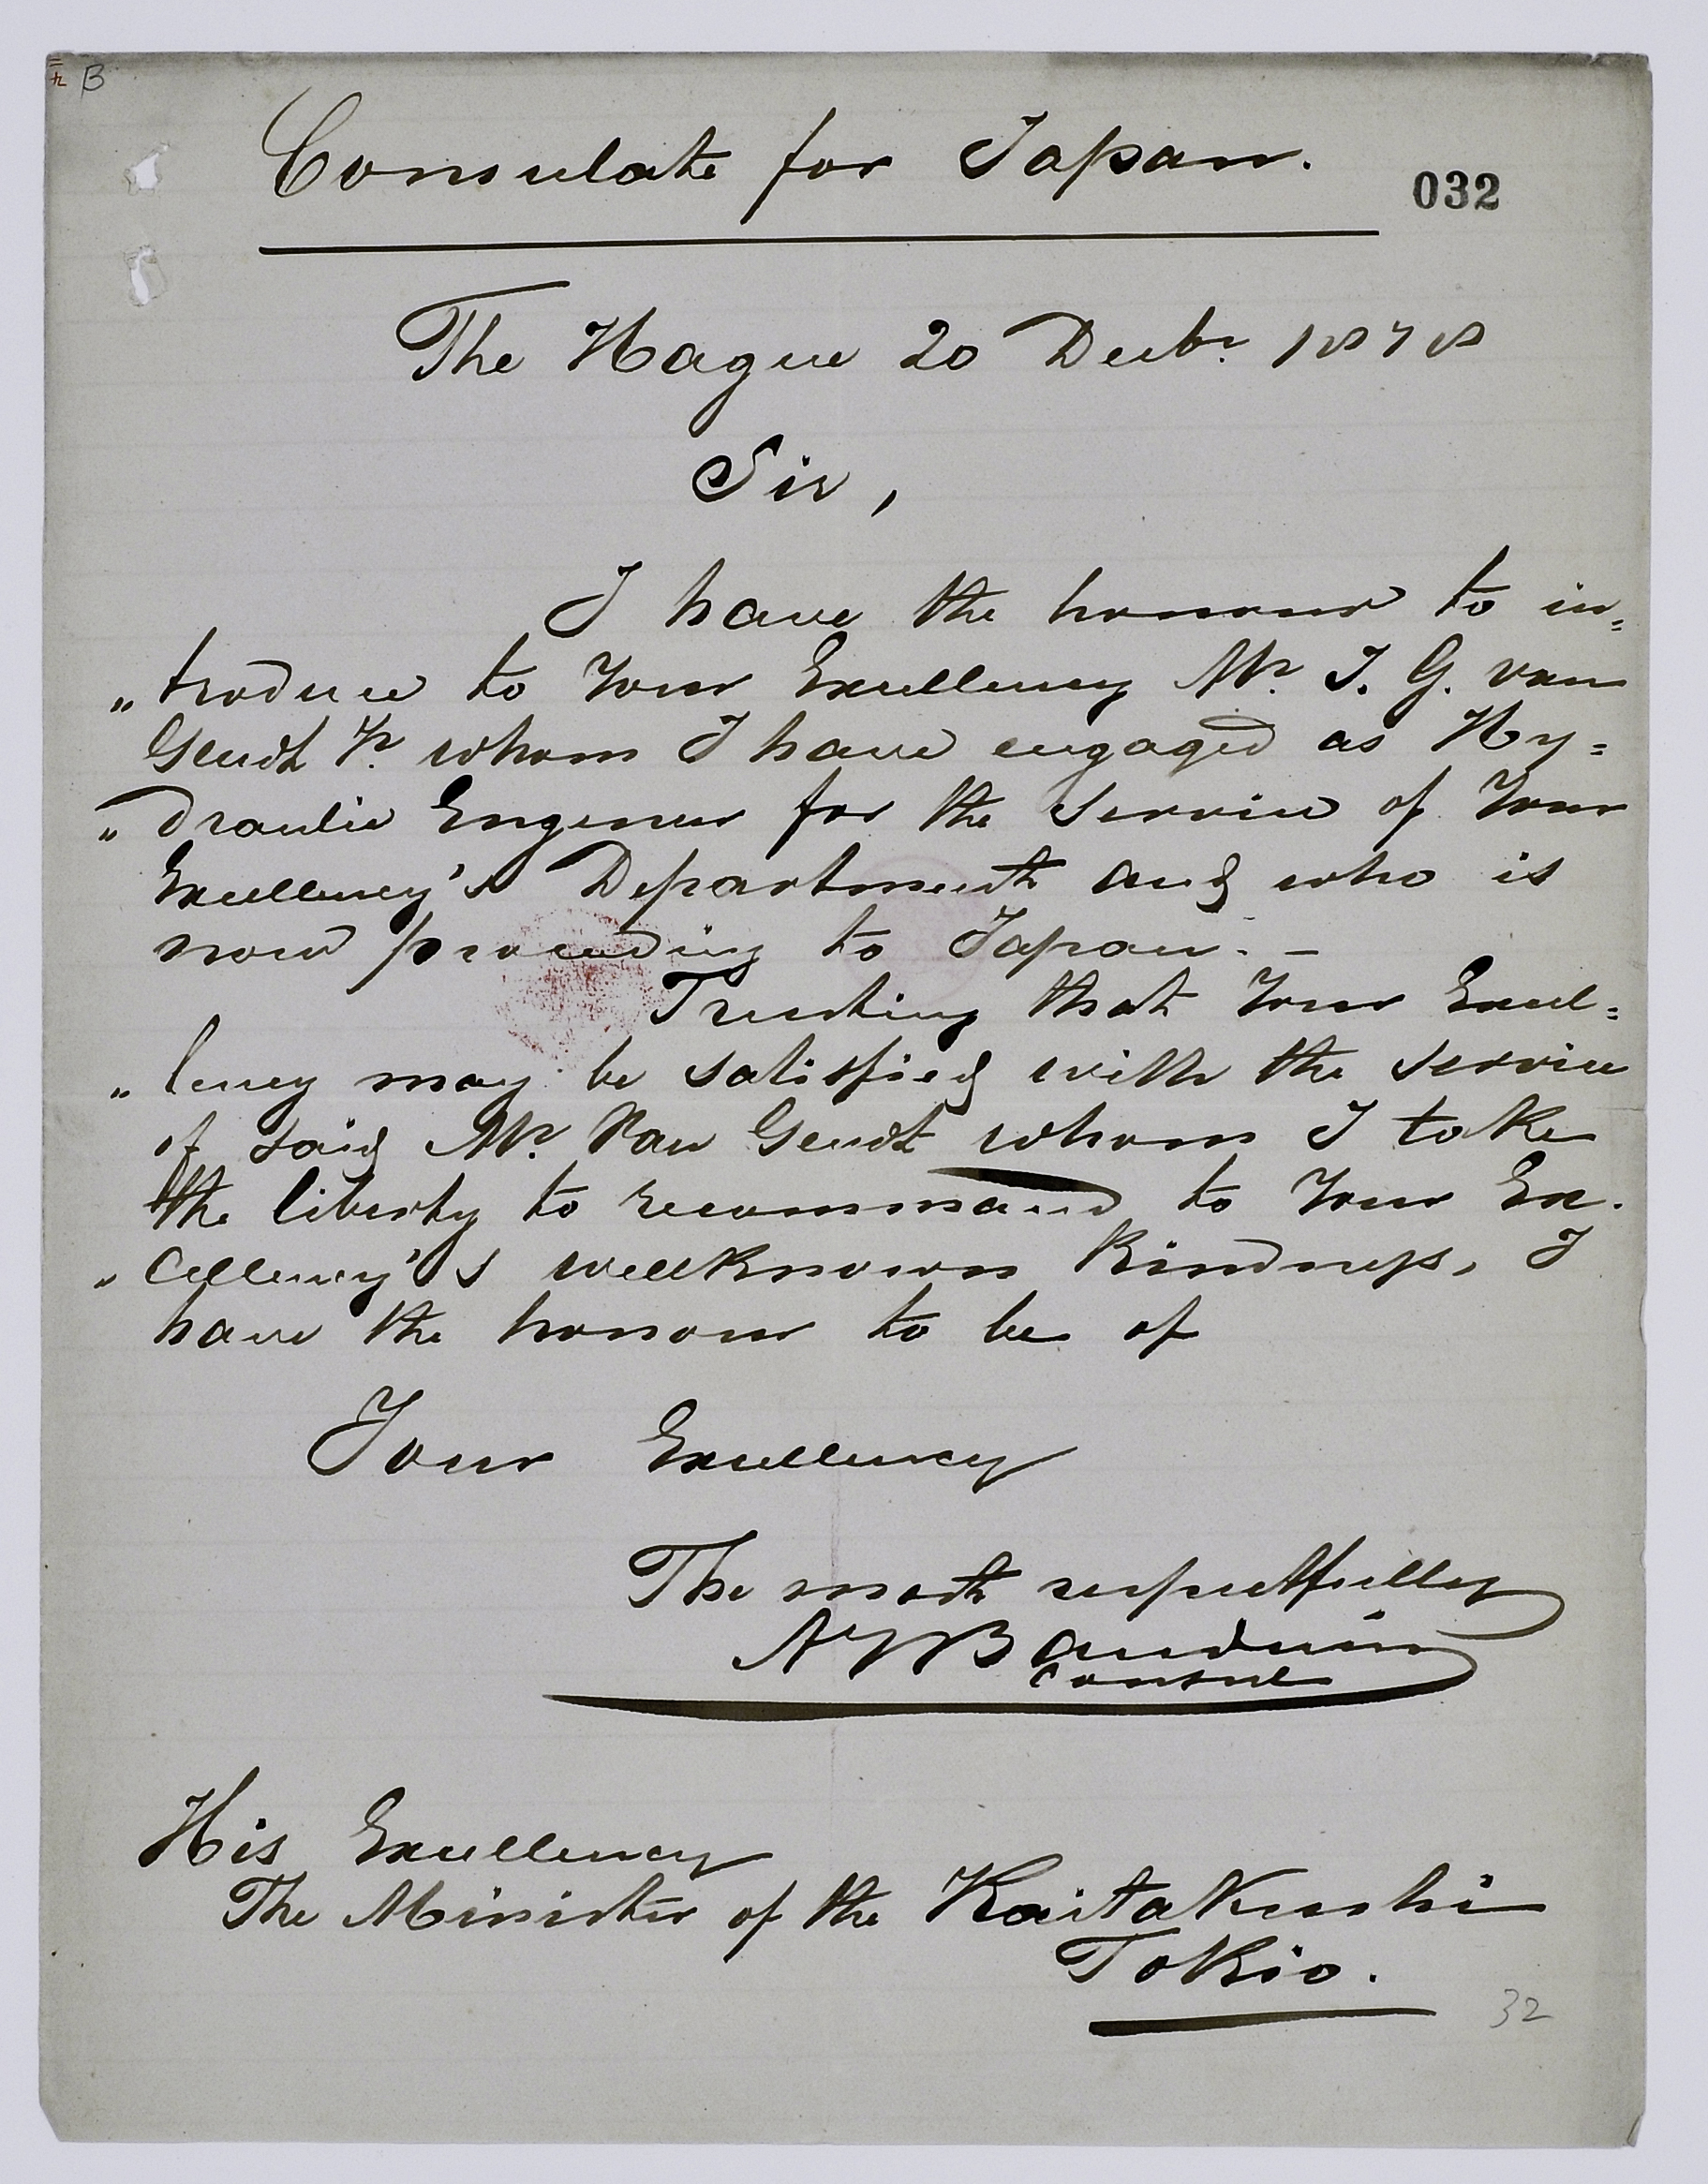 B
Consulate for Japan.
032
The Hague 20 Decbr 1878
Sir,
I have the honour to in=
„troduce to Your Excellency Mr. J. G. van
Gendt Jr. whom I have engaged as Hy=
„draulic Engeneer for the Service of Your
Excellency's Department and who is
now proceeding to Japan. —
Trusting that Your Excel=
„lency may be satisfied with the service
of said Mr. Van Gendt whom I take
the liberty to recommand to Your Ex.
„cellency's wellknown Kindness, I
have the honour to be of
Your Excellency
The most respectfully
Bauduin
Consul
His Excellency
The Minister of the Kaitakushi
Tokio.
32